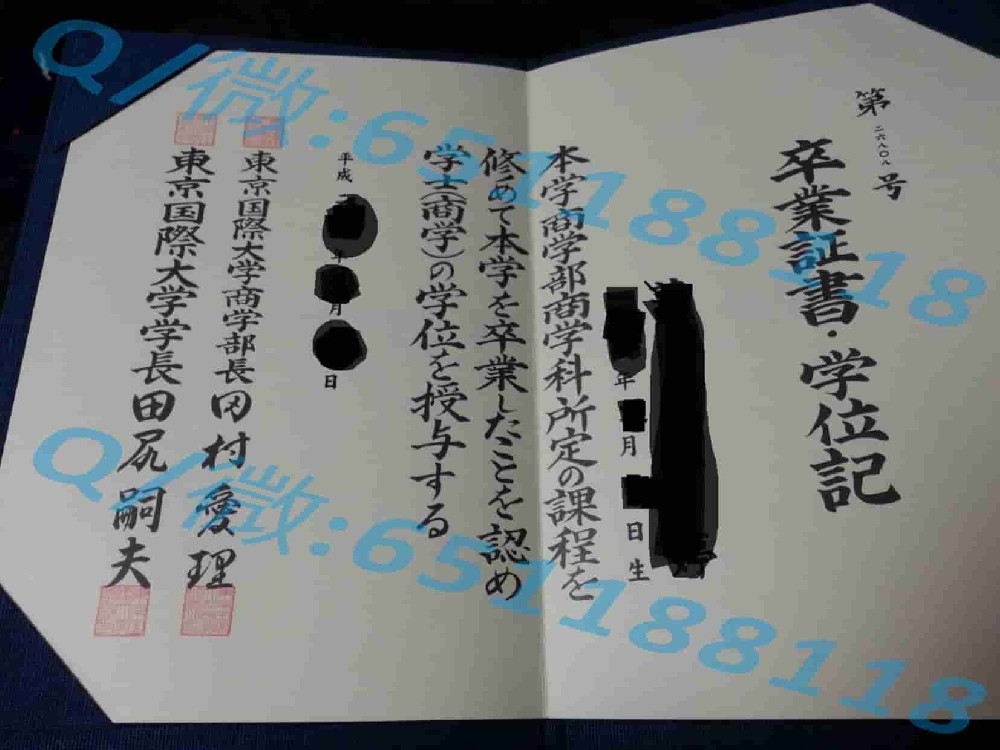 第二六八〇八号
卒業証書・学位記
年 月 日生
本学商学部商学科所定の課程を
修めて本学を卒業したことを認め
学士(商学)の学位を授与する
平成 年 月 日
東京国際大学商学部長 田村愛理
東京国際大学学長 田尻嗣夫
Q/微:651188118
Q/微:651188118